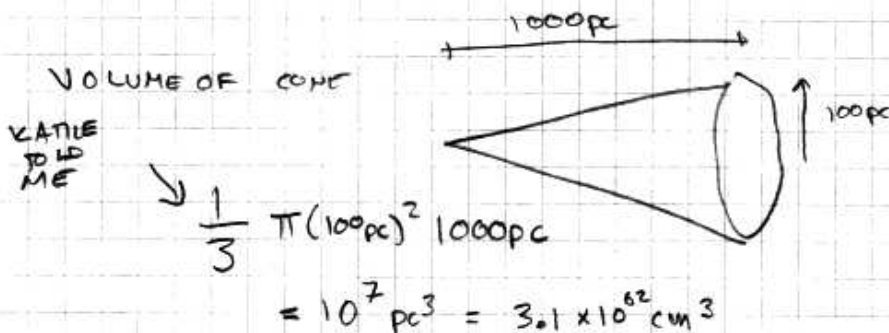 1000pc
VOLUME OF CONE
100pc
KATIE
TOLD
ME
1/3 π(100pc)² 1000pc
= 10⁷ pc³ = 3.1 × 10⁶² cm³